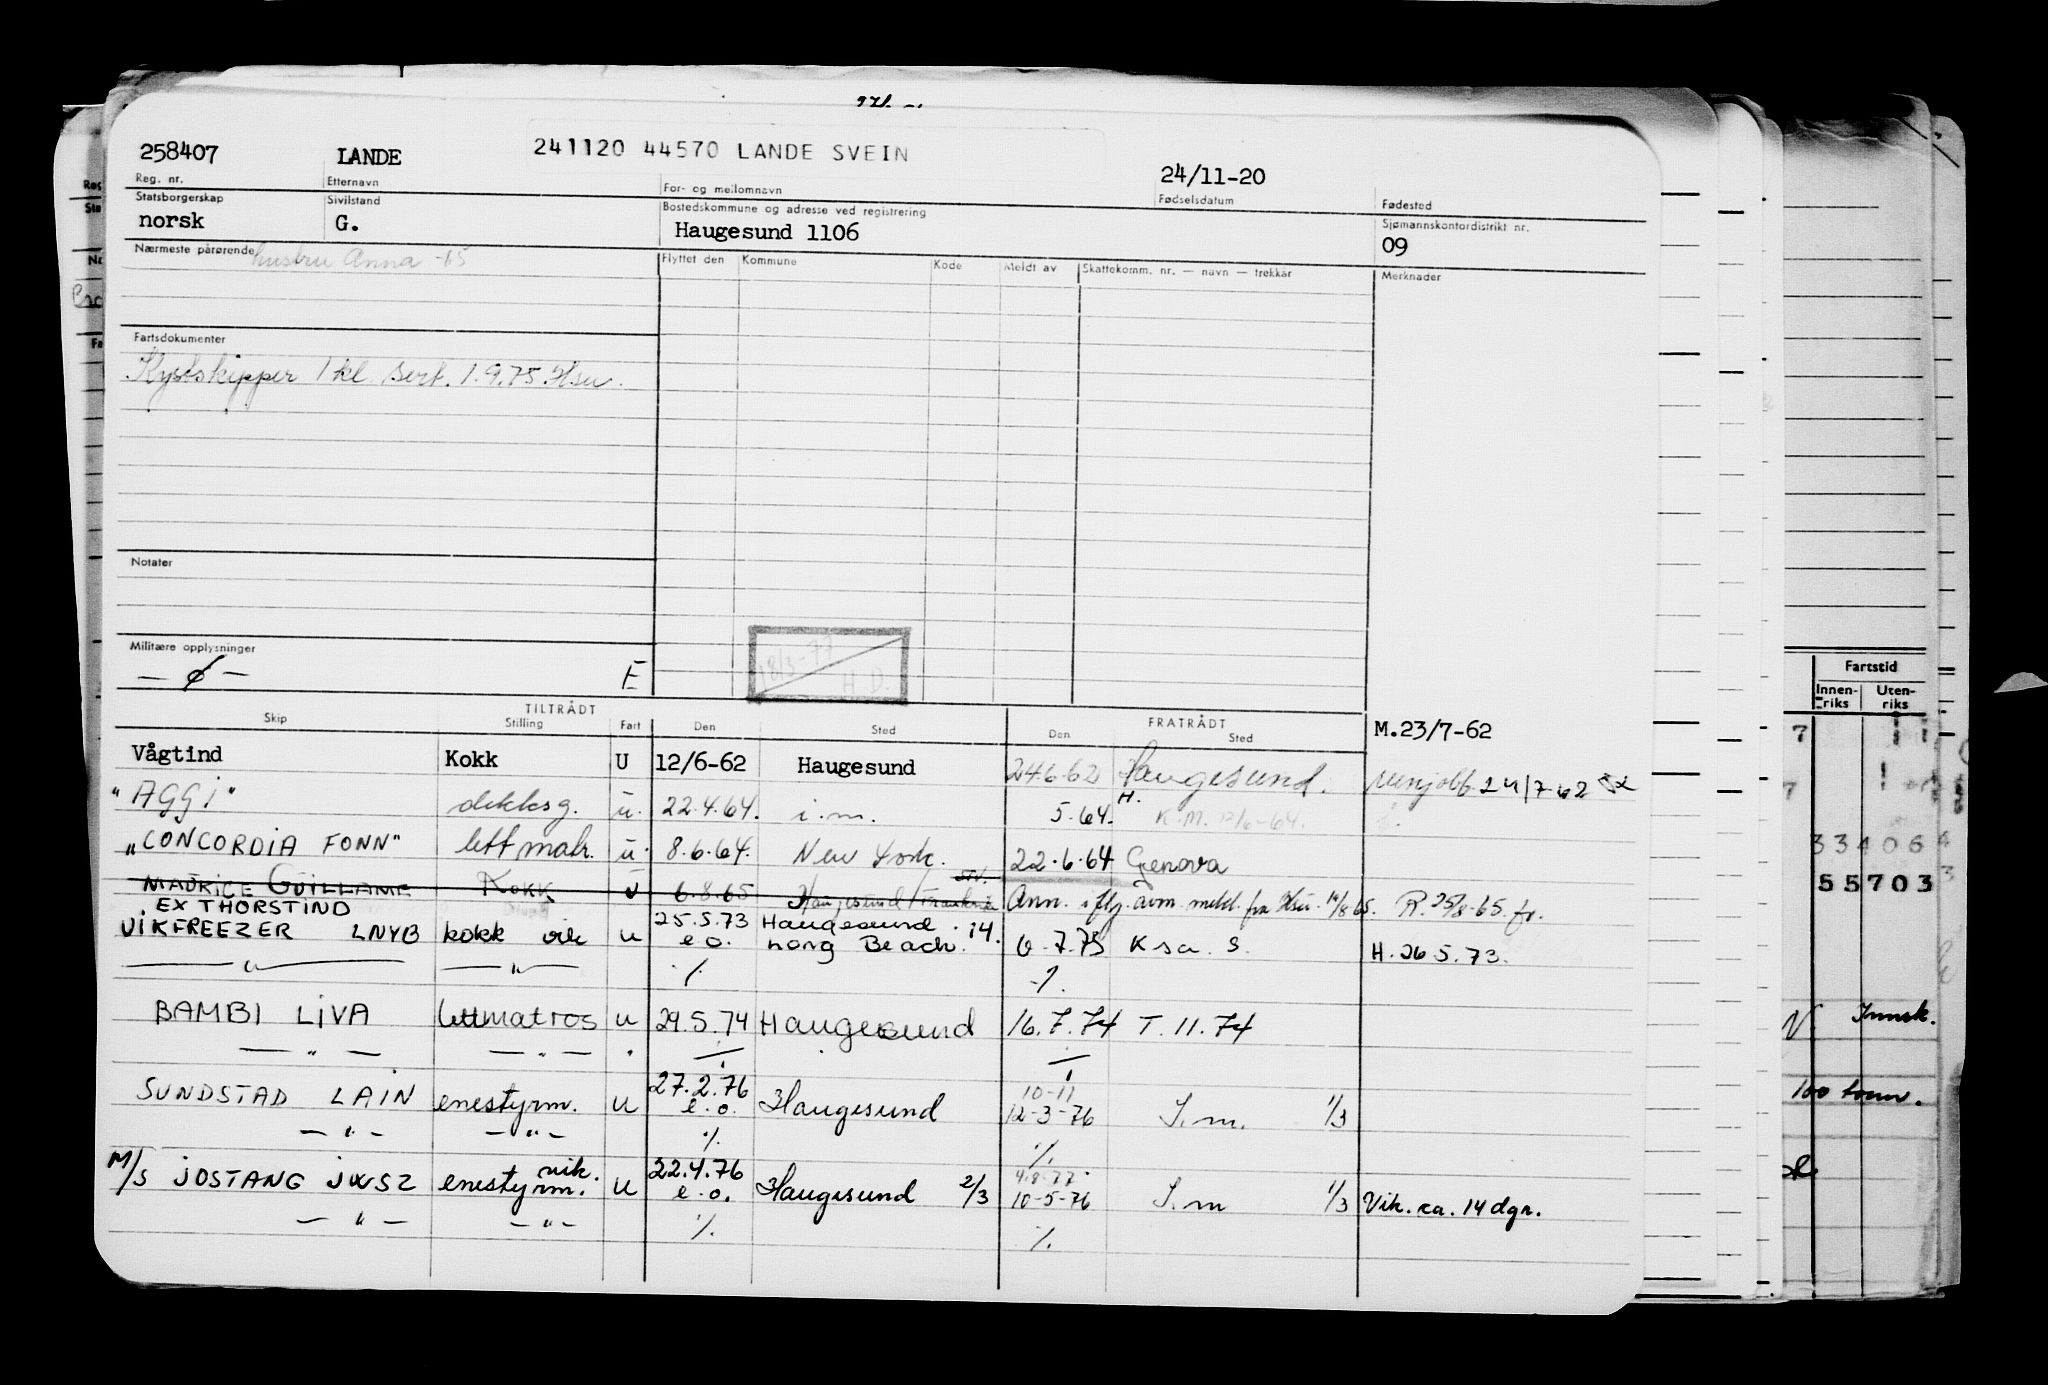 258407 LANDE 241120 44570 LANDE SVEIN 24/11-20
Reg. nr. Etternavn For- og mellomnavn Fødselsdatum Fødested
Statsborgerskap Sivilstand Bostedskommune og adresse ved registrering Sjømannskontordistrikt nr.
norsk G. Haugesund 1106 09
Nærmeste pårørende hustru Anna -65 Flyttet den Kommune Kode Meldt av Skattekomm. nr. — navn — trekkär Merknader
Fartsdokumenter
Kystskipper 1 kl. sert. 1.9.75. Hsu.
Notater
Militære opplysninger
E
18/3-77
H.D.
TILTRÅDT FRATRÅDT
Skip Stilling Fart Den Sted Den Sted M.23/7-62
Vågtind Kokk U 12/6-62 Haugesund 24.6.62 Haugesund. 24/7-62
"AGGI" dekksg. u. 22.4.64. i.m. 5.64. H. K.M. 12/6-64.
"CONCORDIA FONN" lett matr. u. 8.6.64. New York. 22.6.64 Genova
MAURICE GUILLAME KOKK U 6.8.65 Haugesund/Frankrik Ann. iflg. avm. meld. fra Hsu. 14/8 65. R. 25/8-65.
EX THORSTIND
VIKFREEZER LNYB kokk vik u 25.5.73 e.o. Haugesund Long Beach. i4. 6.7.73 K sa. S. H. 26.5.73.
— " — — " — ./. ./.
BAMBI LIVA lettmatros u 29.5.74 Haugesund 16.7.74 T. 11.74
— " — — " — "
SUNDSTAD LAIN enestyrm. u 27.2.76 e.o. Haugesund 10-11 12-3-76 I.m. 1/3
— " — — " — ./. ./.
M/S JOSTANG JWSZ enestyrm. vik. u 22.4.76 e.o. Haugesund 2/3 4.8.77. 10-5-76 I.m 1/3 Vik. ca. 14 dgr.
— " — — " — ./. ./.
Fartstid
Innenriks Utenriks
7
7
33406
55703
Innsk.
100 tonn.